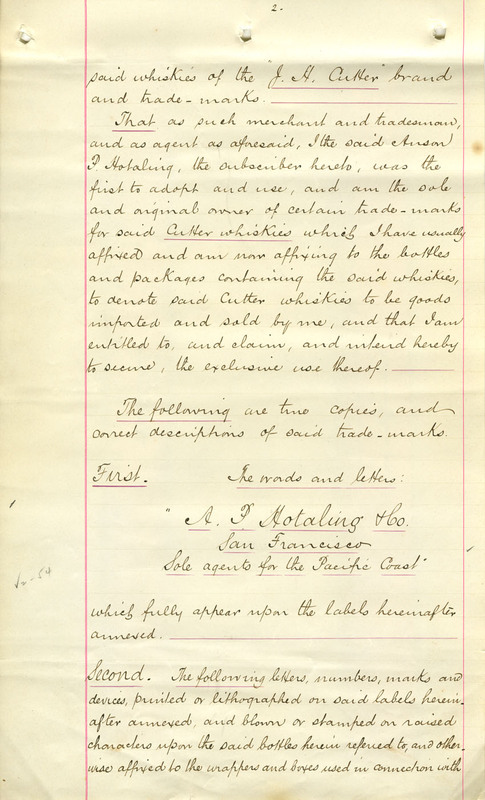 2.
said whiskies of the "J. H. Cutter" brand
and trade-marks.
That as such merchant and tradesman,
and as agent as aforesaid, I the said Anson
P. Hotaling, the subscriber hereto, was the
first to adopt and use, and am the sole
and original owner of certain trade-marks
for said Cutter whiskies which I have usually
affixed and am now affixing to the bottles
and packages containing the said whiskies,
to denote said Cutter whiskies to be goods
imported and sold by me, and that I am
entitled to, and claim, and intend hereby
to secure, the exclusive use thereof.
The following are true copies, and
correct descriptions of said trade-marks.
First. The words and letters:
"A. P. Hotaling & Co.
San Francisco
Sole agents for the Pacific Coast"
which fully appear upon the labels hereinafter
annexed.
Second. The following letters, numbers, marks and
devices, printed or lithographed on said labels herein-
after annexed, and blown or stamped on raised
characters upon the said bottles herein referred to, and other-
wise affixed to the wrappers and boxes used in connection with